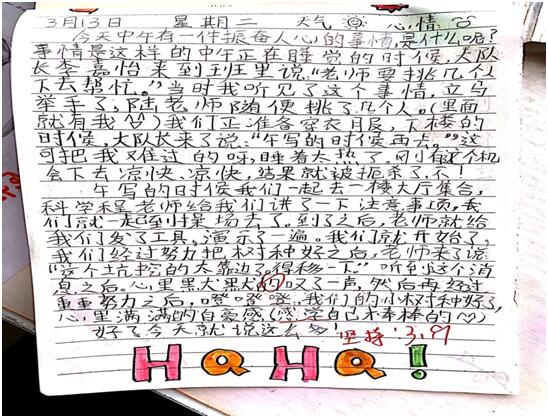 3月13日 星期二 天气 心情
今天中午有一件振奋人心的事情,是什么呢?
事情是这样的中午正在睡觉的时候,大队
长李嘉怡来到班里说,“老师要挑几个人
下去帮忙。”当时我听见了这个事情,立马
举手了,陆老师随便挑了几个人。(里面
就有我)我们正准备穿衣服,下楼的
时候,大队长来了说:“午写的时候再去。”这
可把我难过的呀,睡着太热了。刚有这个机
会下去凉快凉快,结果就被扼杀了,不!
午写的时候我们一起去一楼大厅集合,
科学程老师给我们讲了一下注意事项,我
们就一起到操场去了。到了之后,老师就给
我们发了工具。演示了一遍。我们就开始了,
我们经过努力把树种好之后,老师来了说
“这个坑挖的太靠边了,得移一下。”听到这个消
息之后。心里默默的叹了一声,然后再经过
重重努力之后,噔噔噔,我们的小树种好了,
心里满满的自豪感(感觉自己棒棒的)
好了今天就说这么多! 坚持:3.19
HaHa!